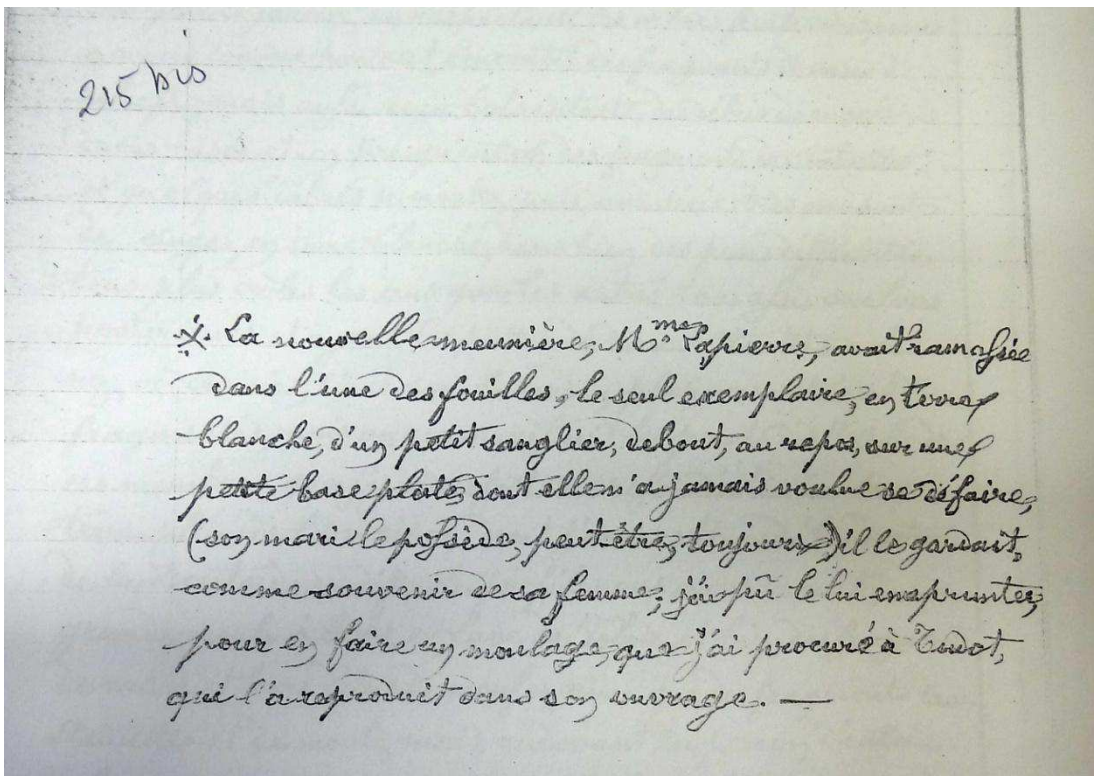 215 bis
※. La nouvelle meunière, Mme Lapierre, avait ramassée
dans l'une des fouilles, le seul exemplaire, en terre
blanche, d'un petit sanglier, debout, au repos, sur une
petite base plate, dont elle n'a jamais voulue se défaire,
(son mari le possède, peut être, toujours) il le gardait,
comme souvenir de sa femme; j'ai pû le lui emprunter,
pour en faire un moulage, que j'ai procuré à Tudot,
qui l'a reproduit dans son ouvrage. —